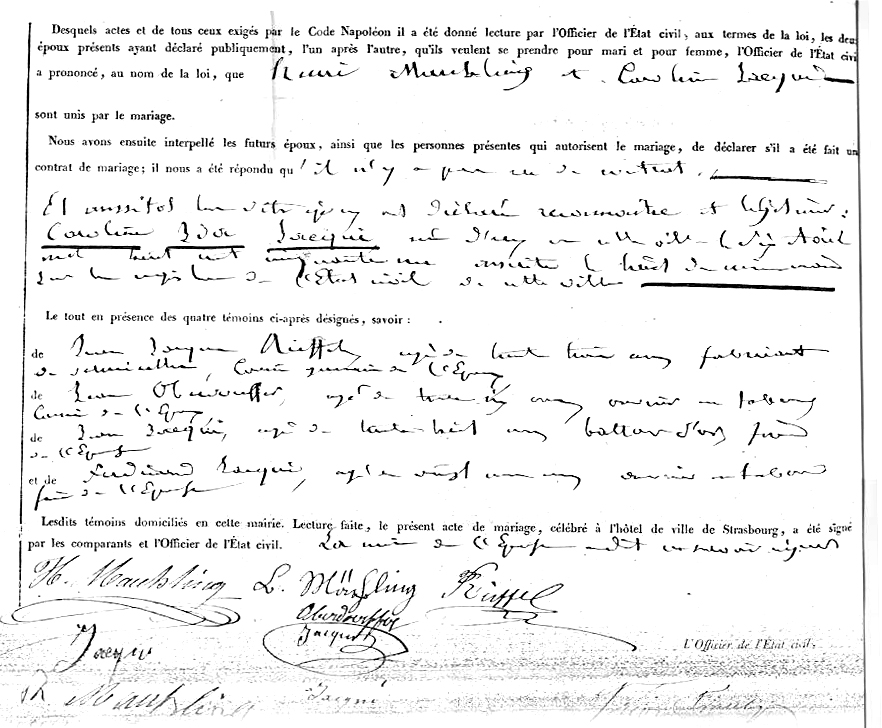 Desquels actes et de tous ceux exigés par le Code Napoléon il a été donné lecture par l'Officier de l'État civil, aux termes de la loi, les deux
époux présents ayant déclaré publiquement, l'un après l'autre, qu'ils veulent se prendre pour mari et pour femme, l'Officier de l'État civi
a prononcé, au nom de la loi, que Henri et Caroline Jacqui
sont unis par le mariage.
Nous avons ensuite interpellé les futurs époux, ainsi que les personnes présentes qui autorisent le mariage, de déclarer s'il a été fait un
contrat de mariage; il nous a été répondu qu'il n'y a pas eu de contrat.
Et aussitôt les dits époux ont déclaré reconnaître et légitimer
Caroline Ida Jacqui née d'eux en cette ville le Août
mil huit cent cinquante inscrite le huit du même mois
sur les registres de l'État civil de cette ville
Le tout en présence des quatre témoins ci-après désignés, savoir :
de Jean Jacques âgé de trente trois ans fabricant
de vermicelles, Cousin germain de l'Epoux
de âgé de trente six ans, ouvrier en tabacs
Cousin de l'Epoux
de Jean Jacqui, âgé de trente huit ans batteur d'or, frère
de l'Epouse
et de Ferdinand Jacqui, âgé de vingt un ans ouvrier en tabacs
frère de l'Epouse
Lesdits témoins domiciliés en cette mairie. Lecture faite, le présent acte de mariage, célébré à l'hôtel de ville de Strasbourg, a été signé
par les comparants et l'Officier de l'État civil. La mère de l'Epouse a dit ne savoir signer
H. Maehsling L. Mäehsling Rieffel
Oberdoerffer
Jacqui Jacqui
L'Officier de l'État civil,
Maehsling Jacqui